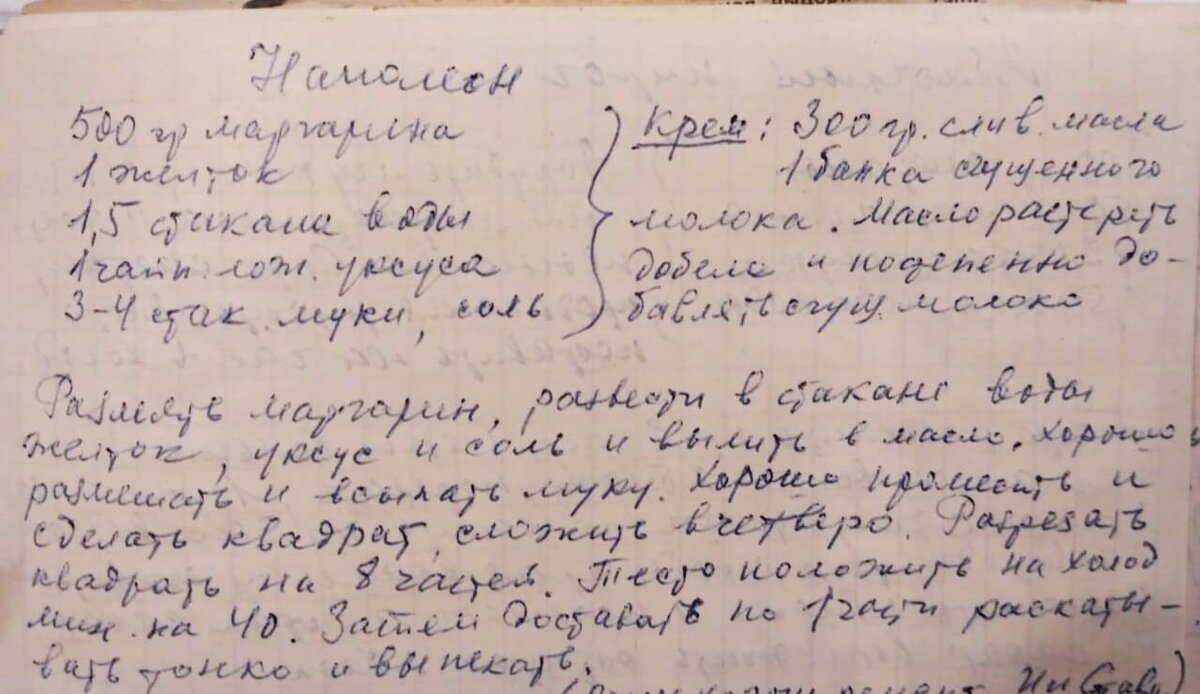 Наполеон
500 гр маргарина
1 желток
1,5 стакана воды
1 чайн лож. уксуса
3-4 стак. муки, соль
Крем: 300 гр. слив. масла
1 банка сгущенного
молока. Масло растереть
добела и постепенно до-
бавлять сгущ. молоко
Размять маргарин, развести в стакане воды
желток, уксус и соль и вылить в масло. Хорошо
размешать и всыпать муку. Хорошо промесить и
сделать квадрат, сложить вчетверо. Разрезать
квадрать на 8 частей. Тесто положить на холод
мин. на 40. Затем доставать по 1 части раскаты-
вать тонко и выпекать.